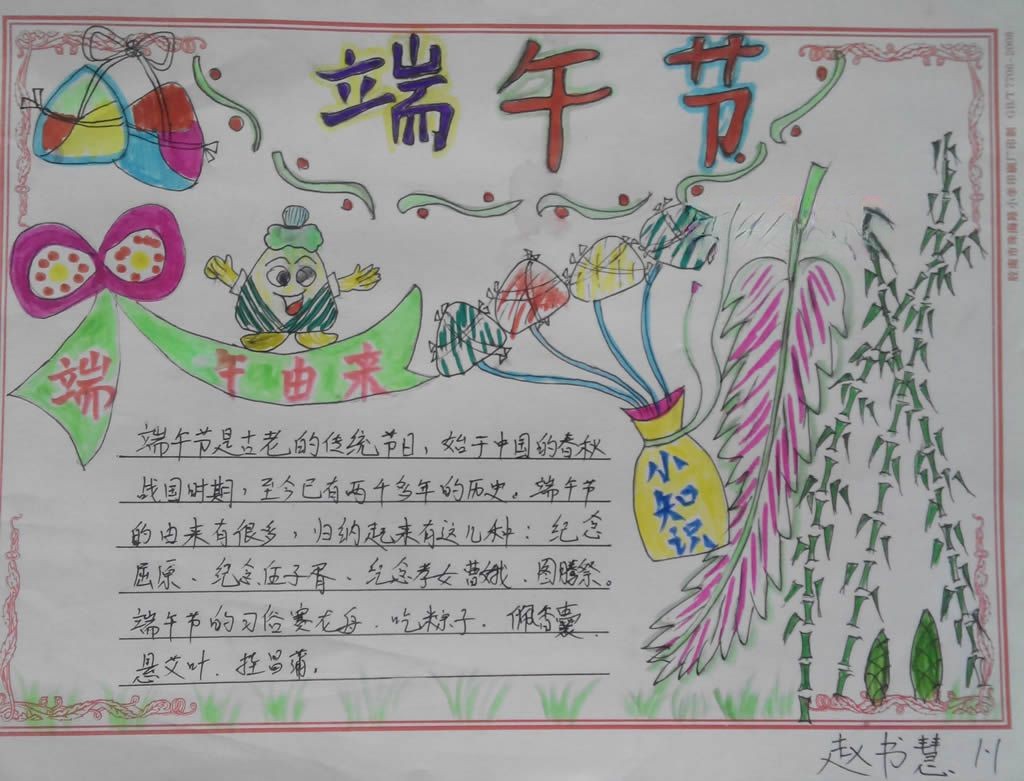 端午节
端午由来
小知识
端午节是古老的传统节日，始于中国的春秋
战国时期，至今已有两千多年的历史。端午节
的由来有很多，归纳起来有这几种：纪念
屈原、纪念伍子胥、纪念孝女曹娥、图腾祭。
端午节的习俗赛龙舟、吃粽子、佩香囊、
悬艾叶、挂菖蒲。
赵书慧 1-1
GB/T 7706-2008